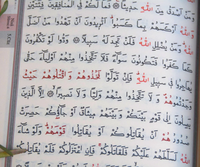 وَمَنْ أَصْدَقُ مِنَ اللَّهِ حَدِيثًا فَمَا لَكُمْ فِي الْمُنَافِقِينَ فِئَتَيْنِ
وَاللَّهُ أَرْكَسَهُم بِمَا كَسَبُوا أَتُرِيدُونَ أَن تَهْدُوا مَنْ أَضَلَّ
اللَّهُ وَمَن يُضْلِلِ اللَّهُ فَلَن تَجِدَ لَهُ سَبِيلًا وَدُّوا لَوْ تَكْفُرُونَ
كَمَا كَفَرُوا فَتَكُونُونَ سَوَاءً فَلَا تَتَّخِذُوا مِنْهُمْ أَوْلِيَاءَ حَتَّىٰ
يُهَاجِرُوا فِي سَبِيلِ اللَّهِ فَإِن تَوَلَّوْا فَخُذُوهُمْ وَاقْتُلُوهُمْ حَيْثُ
وَجَدتُّمُوهُمْ وَلَا تَتَّخِذُوا مِنْهُمْ وَلِيًّا وَلَا نَصِيرًا إِلَّا الَّذِينَ
يَصِلُونَ إِلَىٰ قَوْمٍ بَيْنَكُمْ وَبَيْنَهُم مِّيثَاقٌ أَوْ جَاءُوكُمْ حَصِرَتْ
صُدُورُهُمْ أَن يُقَاتِلُوكُمْ أَوْ يُقَاتِلُوا قَوْمَهُمْ وَلَوْ شَاءَ
اللَّهُ لَسَلَّطَهُمْ عَلَيْكُمْ فَلَقَاتَلُوكُمْ فَإِنِ اعْتَزَلُوكُمْ فَلَمْ يُقَاتِلُوكُمْ